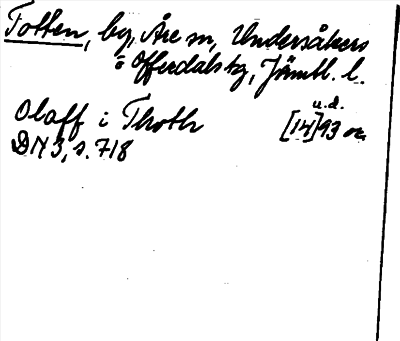 Totten, by, Åre sn, Undersåkers
o Offerdals tg, Jämtl. l.
u.d.
Olaff i Thoth [14]93 or
DN 3, s. 718